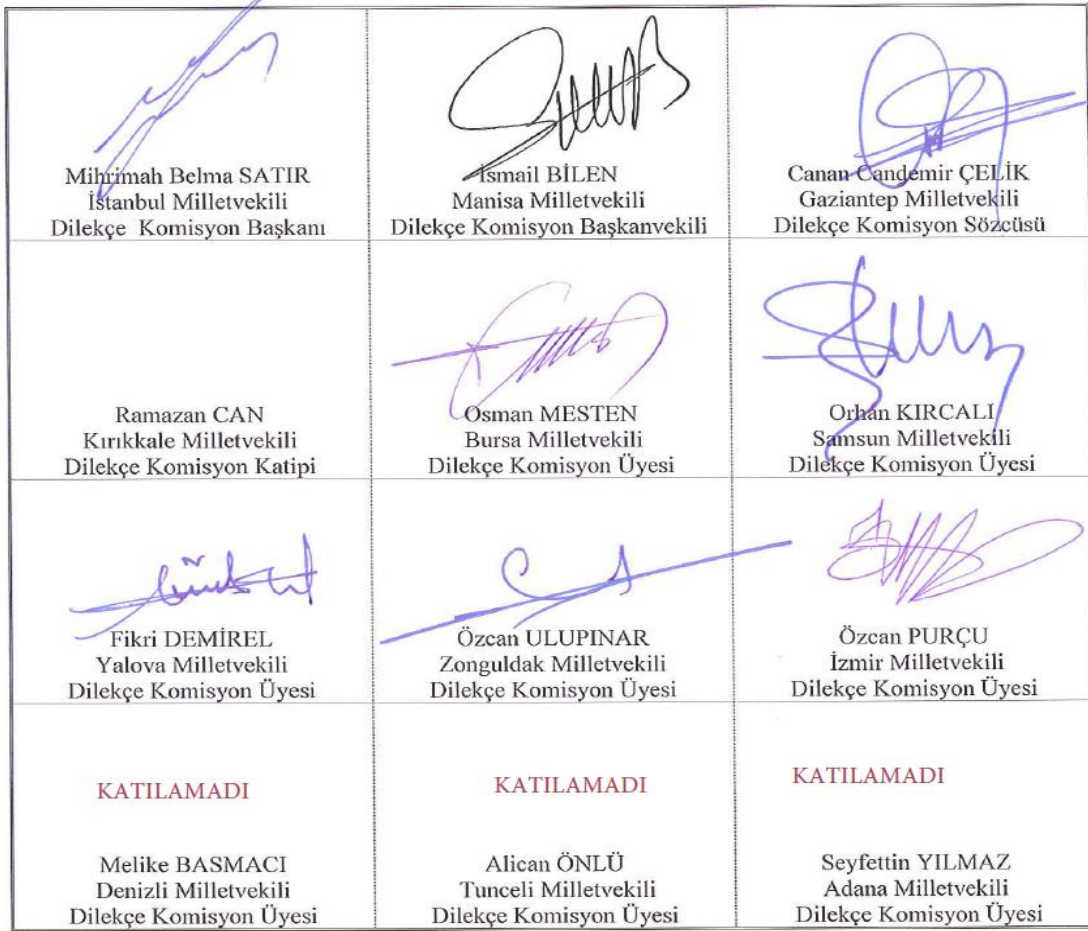 Mihrimah Belma SATIR
İstanbul Milletvekili
Dilekçe Komisyon Başkanı
İsmail BİLEN
Manisa Milletvekili
Dilekçe Komisyon Başkanvekili
Canan Candemir ÇELİK
Gaziantep Milletvekili
Dilekçe Komisyon Sözcüsü
Ramazan CAN
Kırıkkale Milletvekili
Dilekçe Komisyon Katipi
Osman MESTEN
Bursa Milletvekili
Dilekçe Komisyon Üyesi
Orhan KIRCALI
Samsun Milletvekili
Dilekçe Komisyon Üyesi
Fikri DEMİREL
Yalova Milletvekili
Dilekçe Komisyon Üyesi
Özcan ULUPINAR
Zonguldak Milletvekili
Dilekçe Komisyon Üyesi
Özcan PURÇU
İzmir Milletvekili
Dilekçe Komisyon Üyesi
KATILAMADI
Melike BASMACI
Denizli Milletvekili
Dilekçe Komisyon Üyesi
KATILAMADI
Alican ÖNLÜ
Tunceli Milletvekili
Dilekçe Komisyon Üyesi
KATILAMADI
Seyfettin YILMAZ
Adana Milletvekili
Dilekçe Komisyon Üyesi